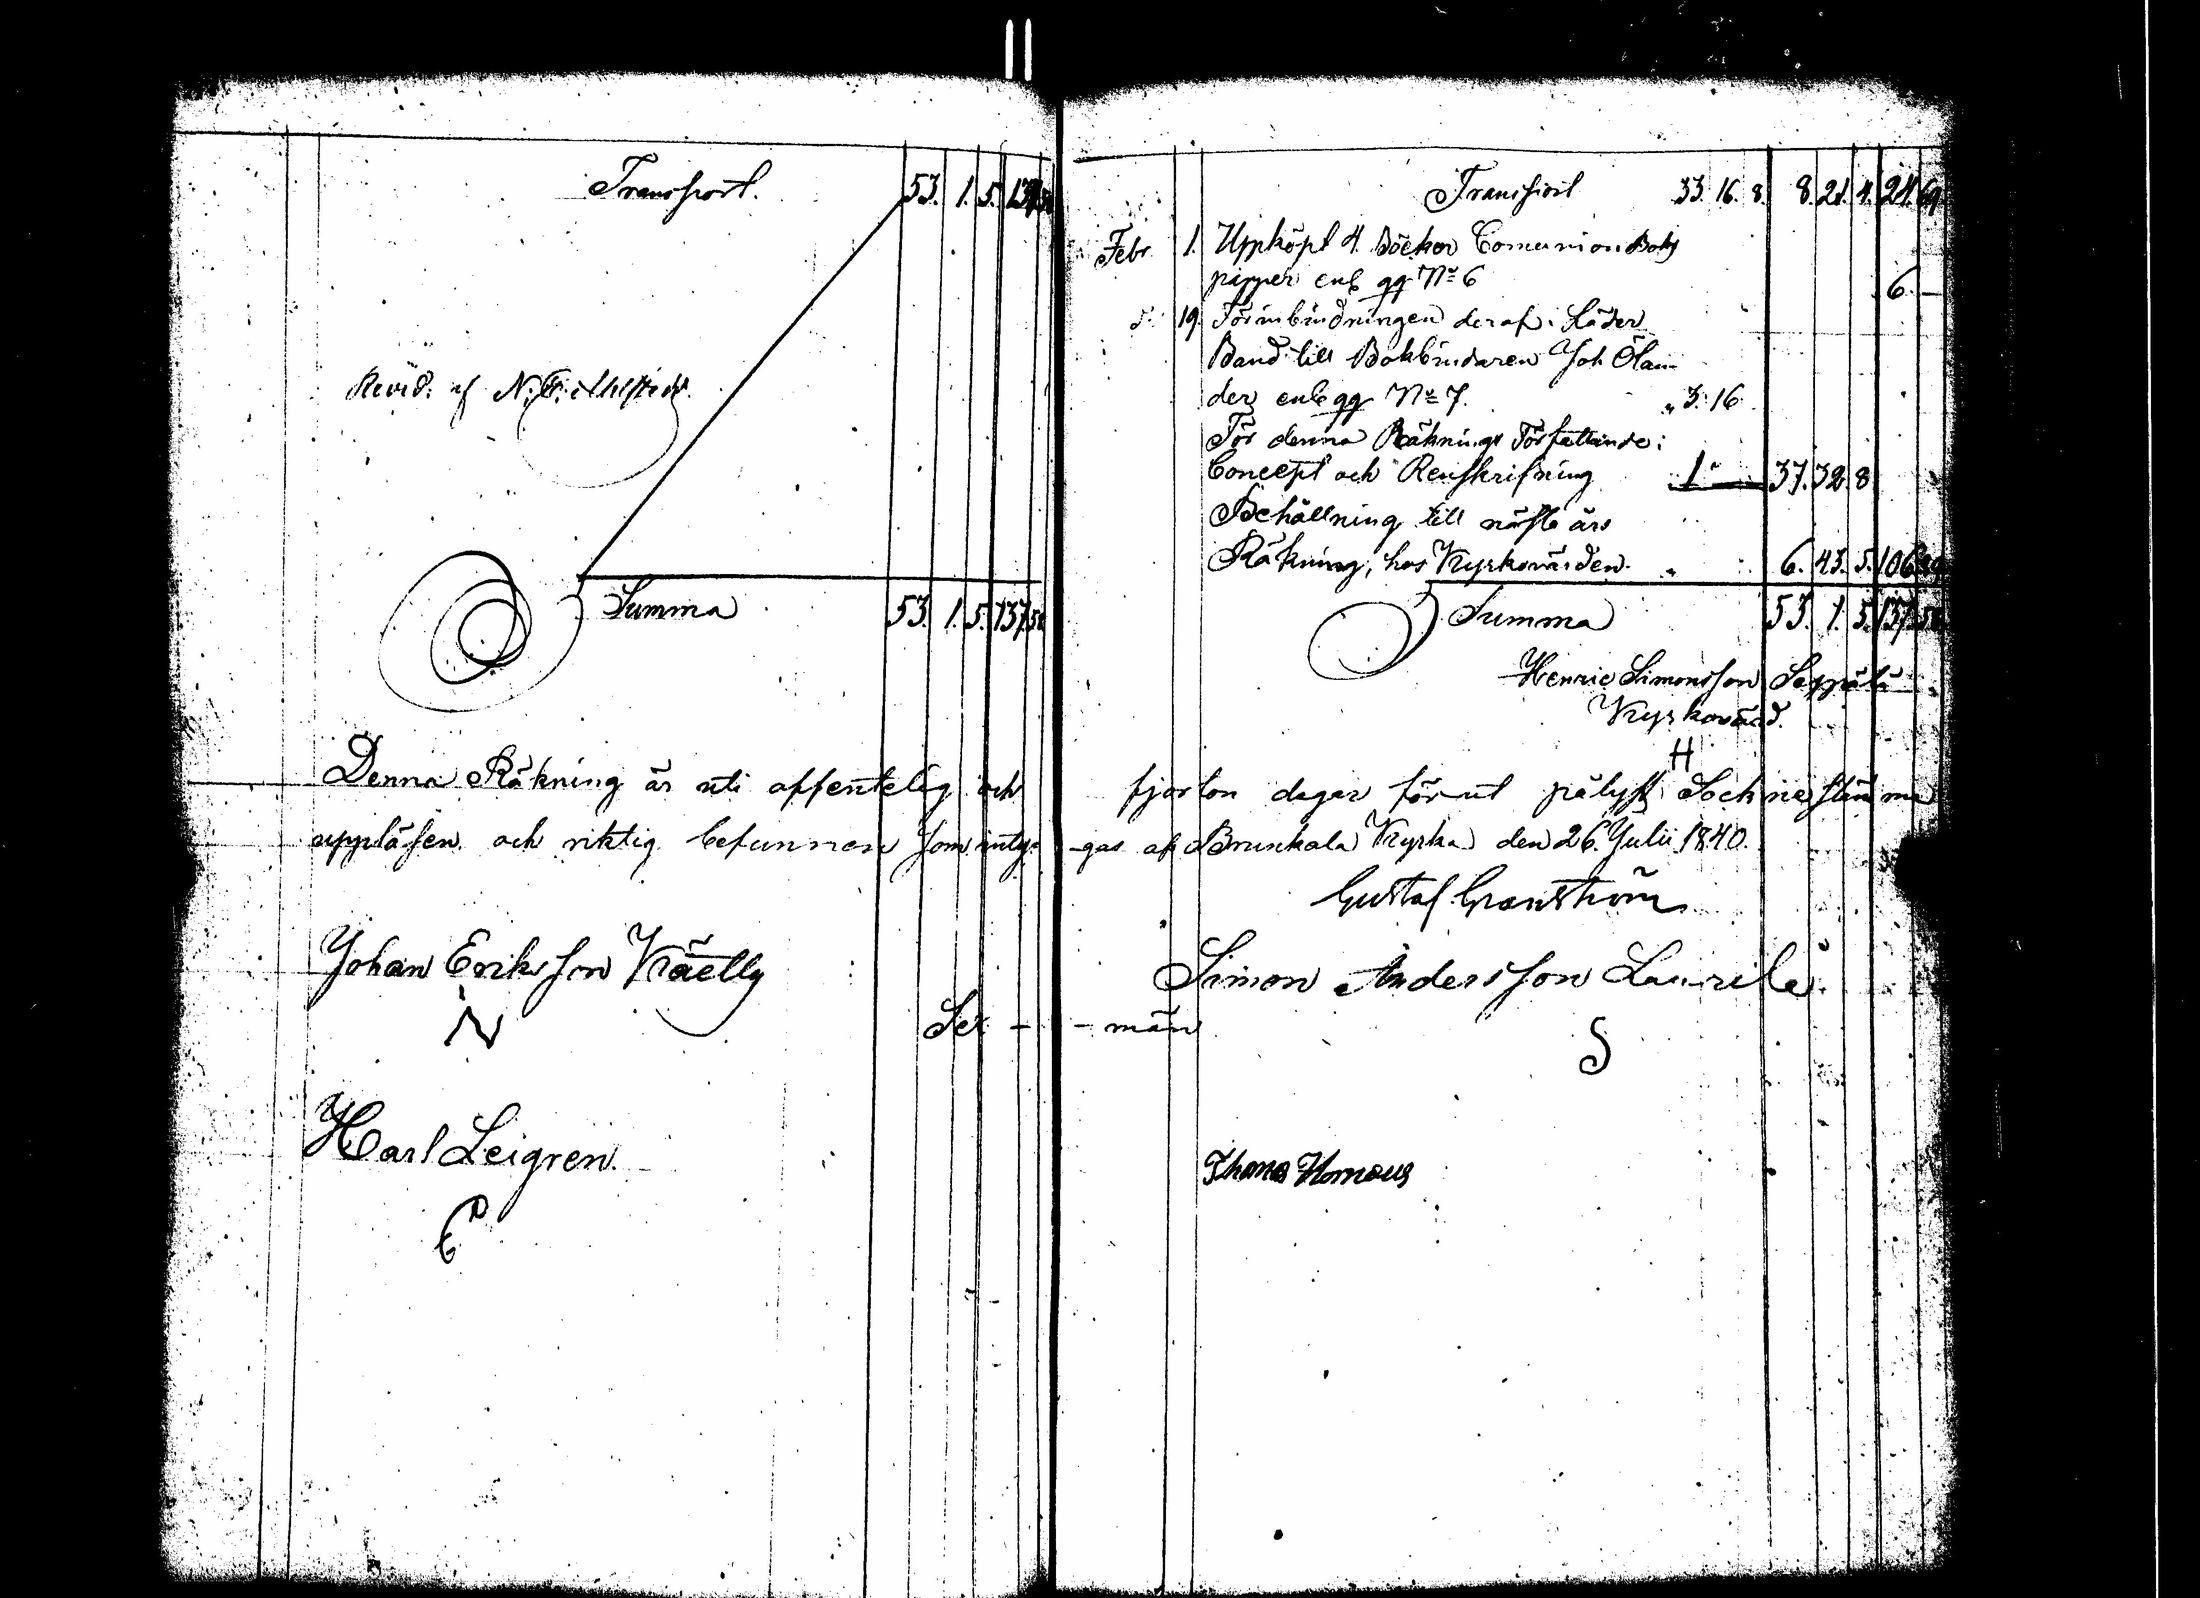 Transport. 53. 1. 5. 137 58
Revid. af N. F.
Summa 53. 1. 5. 137 58
Transport 33. 16. 8. 8. 21. 4. 24. 69.
Febr. 1. Uppköpt 4. Böcker Comunion Boks
papper enl qq No 6 6. —
d. 19. För inbindningen deraf i Läder
Band till Bokbindaren Joh Ölan-
der enl qq No 7. " 3. 16
För denna Räknings Författande i
Concept och Renskrifning 1 " — 37. 32. 8
Behållning till nästa års
Räkning, hos Kyrkovärden. 6. 43. 5. 106
Summa 53. 1. 5. 137. 58
Henric Simonsson Seppälä
Kyrkovärd.
H
Denna Räkning är uti offentelig och fjorton dagar förut pålyst Socknestämma
uppläsen och riktig befunnen som inty- -gas af Brunkala Kyrka den 26. Julii 1840.
Gustaf Granström
Johan Eriksson Knaelly Simon Andersson Laurila
Sex - - män
N S
Karl Leigren. Thomas Homous
E